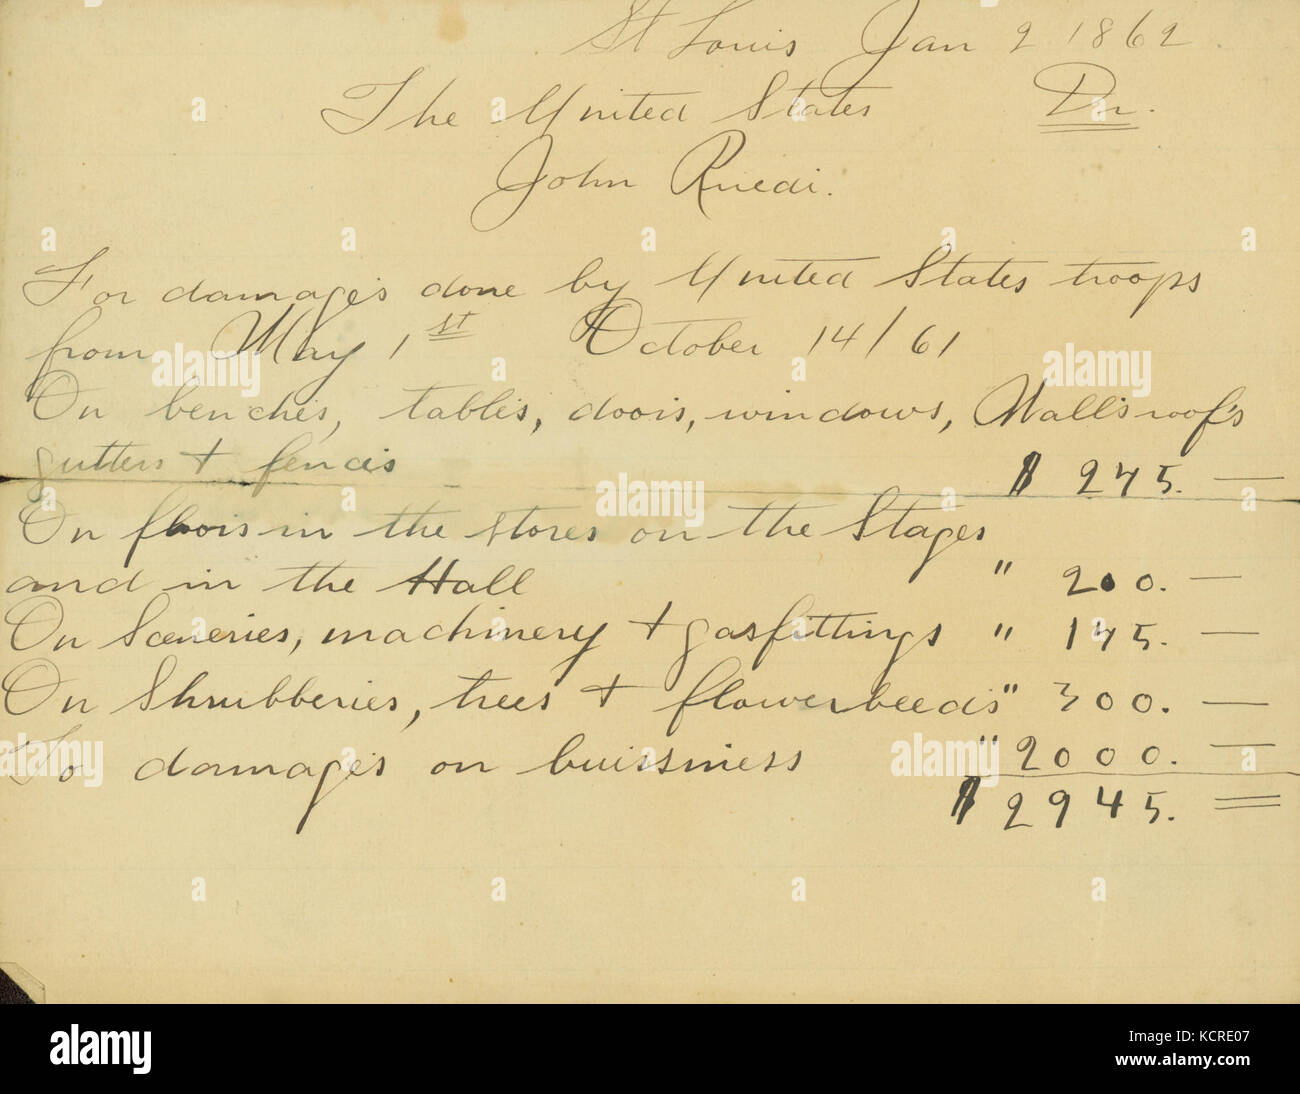 St Louis Jan 2 1862.
The United States Dr.
John Ruedi.
For damages done by United States troops
from May 1st October 14/61
On benches, tables, doors, windows, Walls roof's
gutters + fences $ 245. —
On floors in the stores on the Stages
and in the Hall " 200. —
On Sceneries, machinery + gasfittings " 145. —
On Shrubberies, trees + flowerbeeds " 300. —
To damages on buissiness " 2000. —
$ 2945. =
alamy
Image ID: KCRE07
www.alamy.com